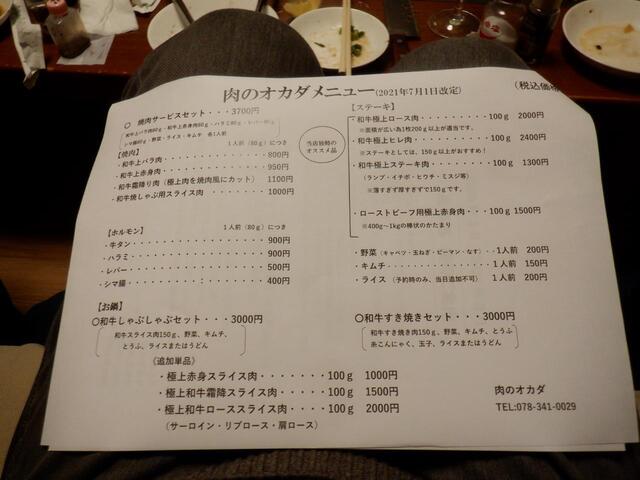 肉のオカダメニュー(2021年7月1日改定)
(税込価格
○ 焼肉サービスセット・・・3700円
和牛上バラ肉80g・和牛上赤身肉80g・ハラミ80g・レバー80g
シマ腸80g・野菜・ライス・キムチ 各1人前
【焼肉】 1人前(80g)につき
・和牛上バラ肉・・・・・・・・・・・・800円
・和牛上赤身肉・・・・・・・・・・・・950円
・和牛霜降り肉(極上肉を焼肉風にカット) 1100円
・和牛焼しゃぶ用スライス肉・・・・・・1000円
当店独特の
オススメ品
【ホルモン】 1人前(80g)につき
・牛タン・・・・・・・・・・・・・・・900円
・ハラミ・・・・・・・・・・・・・・・900円
・レバー・・・・・・・・・・・・・・・500円
・シマ腸・・・・・・・・・・・・・・・400円
【ステーキ】
・和牛極上ロース肉・・・・・・・・・100g 2000円
※面積が広い為1枚200g以上が適当です。
・和牛極上ヒレ肉・・・・・・・・・・100g 2400円
※ステーキとしては、150g以上がおすすめ!
・和牛極上ステーキ肉・・・・・・・・100g 1300円
(ランプ・イチボ・ヒウチ・ミスジ等)
※薄すぎず厚すぎずで150gです。
・ローストビーフ用極上赤身肉・・・100g 1500円
※400g~1kgの棒状のかたまり
・野菜(キャベツ・玉ねぎ・ピーマン・なす)・・1人前 200円
・キムチ・・・・・・・・・・・・・・1人前 150円
・ライス(予約時のみ、当日追加不可)・1人前 200円
【お鍋】
○和牛しゃぶしゃぶセット・・・3000円
和牛スライス肉150g、野菜、キムチ、
とうふ、ライスまたはうどん
○和牛すき焼きセット・・・3000円
和牛すき焼き肉150g、野菜、キムチ、とうふ
糸こんにゃく、玉子、ライスまたはうどん
(追加単品)
・極上赤身スライス肉・・・・・・・100g 1000円
・極上和牛霜降スライス肉・・・・・100g 1500円
・極上和牛ローススライス肉・・・・100g 2000円
(サーロイン・リブロース・肩ロース)
肉のオカダ
TEL:078-341-0029